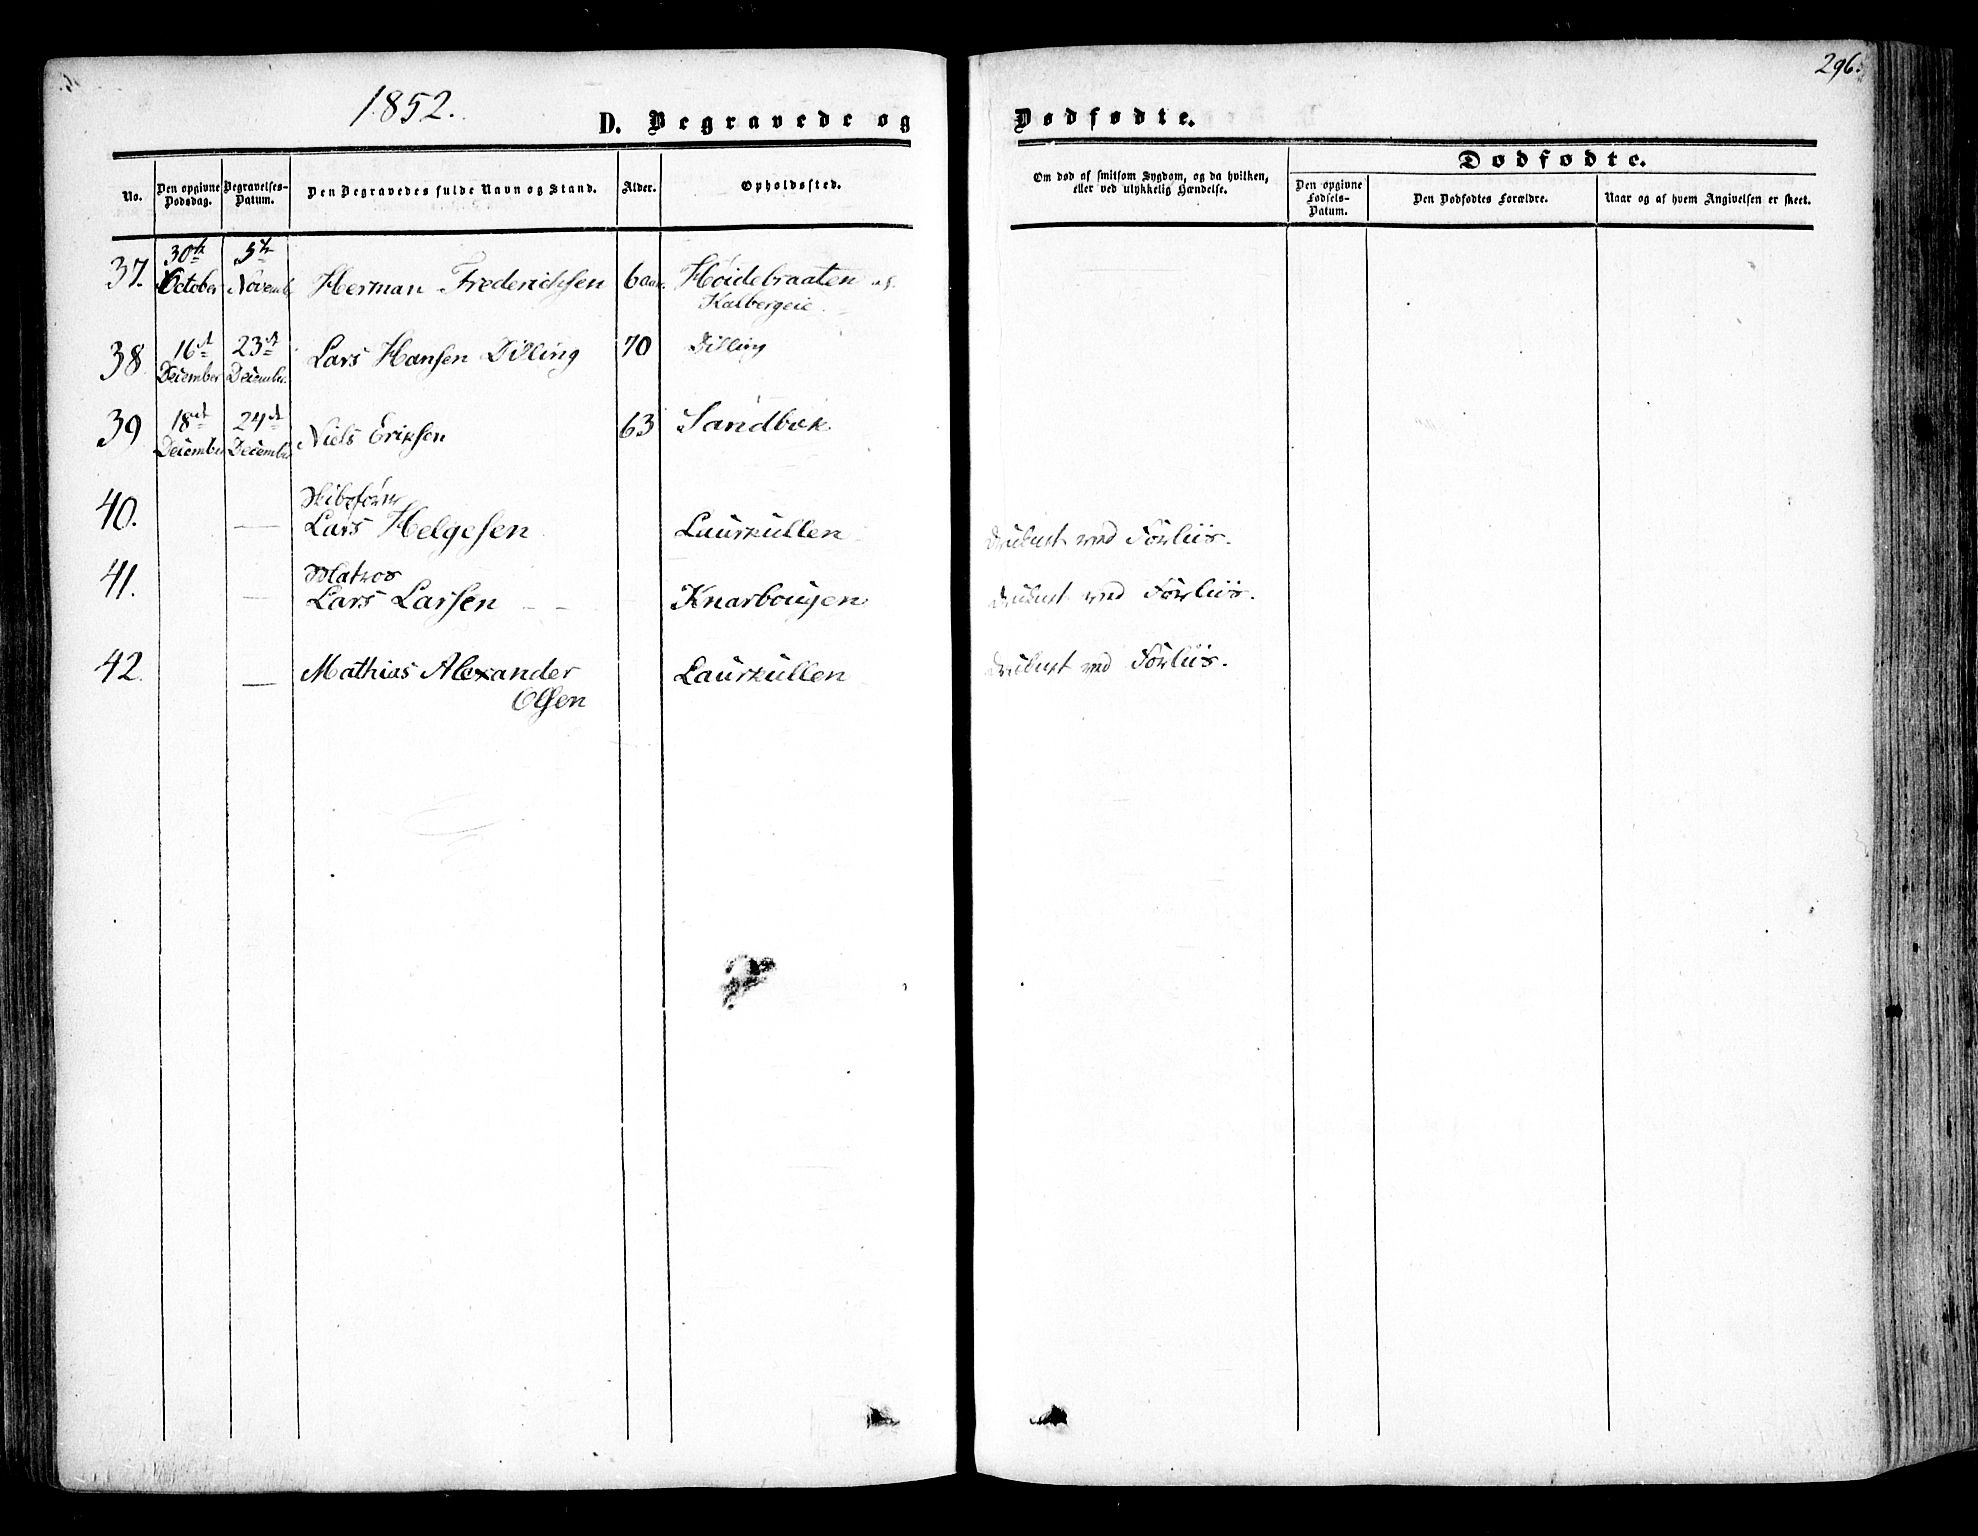 296.
1852.
D. Begravede og
Dødfødte.
No.
Den opgivne Dødsdag.
Begravelses-Datum.
Den Begravedes fulde Navn og Stand.
Alder.
Opholdssted.
Om død af smitsom Sygdom, og da hvilken,
eller ved ulykkelig Hændelse.
Dødfødte.
Den opgivne Fødsels-Datum.
Den Dødfødtes Forældre.
Naar og af hvem Angivelsen er skeet.
37. 30te October 5te Novemb Herman Frederichsen 6 aar. Høidebraaten
Kalbergeie
38 16de December 23de Decembr. Lars Hansen Dilling 70 Dilling
39 18de December 24de December Niels Eriksen 63 Sandbæk
40. —
Skibsfører
Lars Helgesen Laurkullen druknet ved Forliis.
41. —
Matros
Lars Larsen Knarbougen druknet ved Forliis.
42. — Mathias Alexander Laurkullen druknet ved Forliis.
Olsen